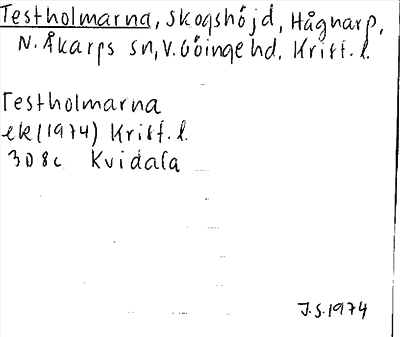 Testholmarna, skogshöjd, Hågnarp,
N. Åkarps sn, V. Göinge hd, Krist. l.
Testholmarna
ek (1974) Krist. l.
308c Kvidala
J.S. 1974